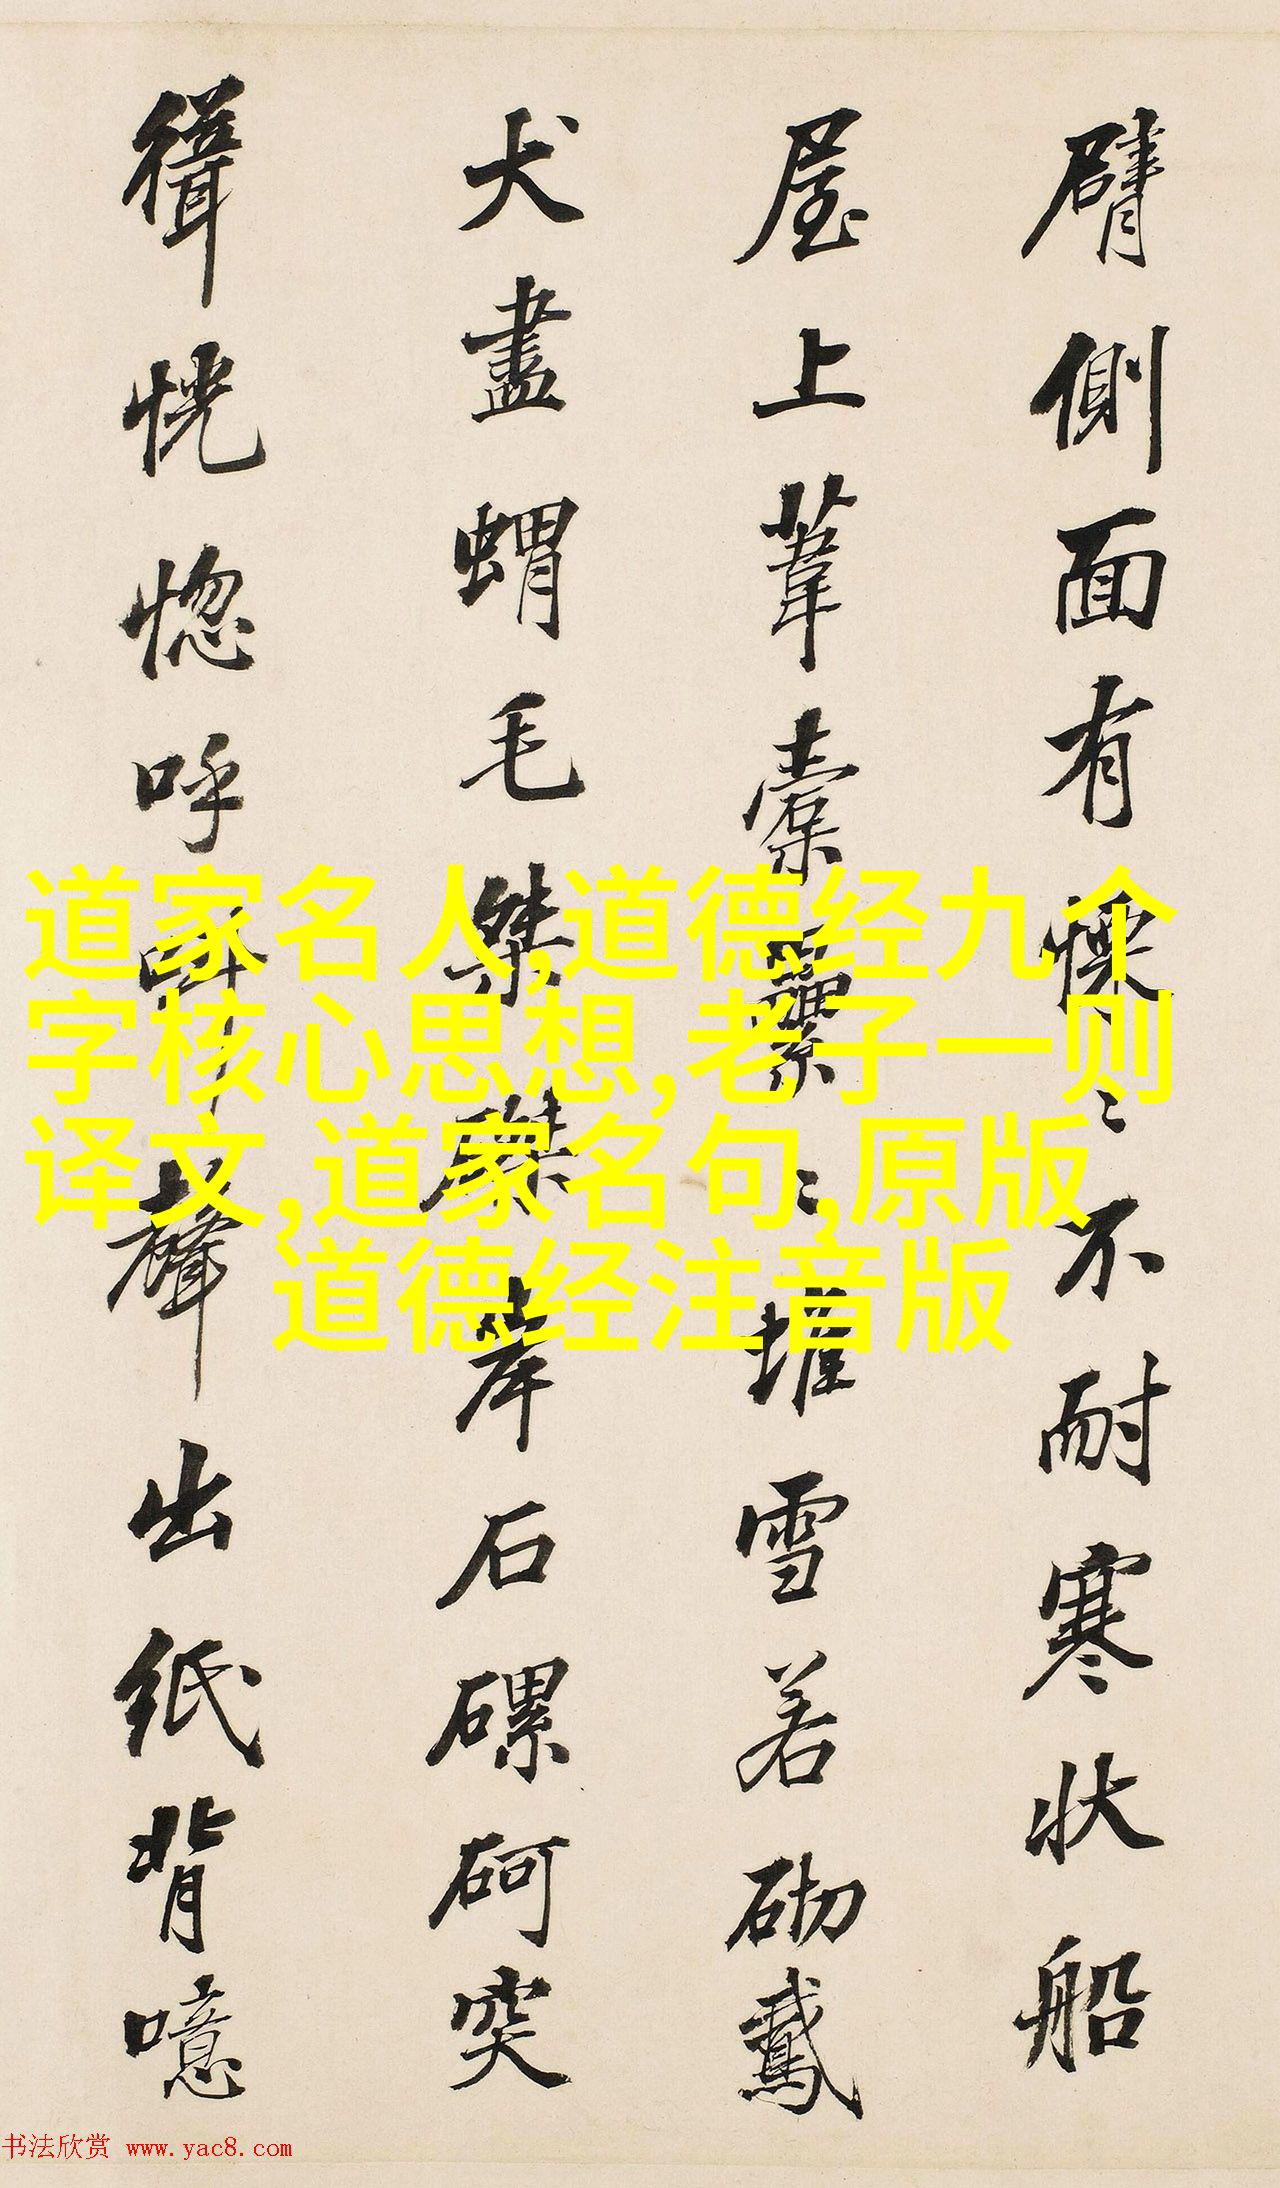 臂側面有懍〻不耐寒状船
屋上葦橐纍〻堆雪若砌鳶
犬盡蝟毛桀磔岸石磥砢突
緝恍惚呼聲出紙背噫
道家名人,道德经九个
字核心思想,老子一则
译文,道家名句,原版
道德经注音版
书法欣赏 www.yac8.com